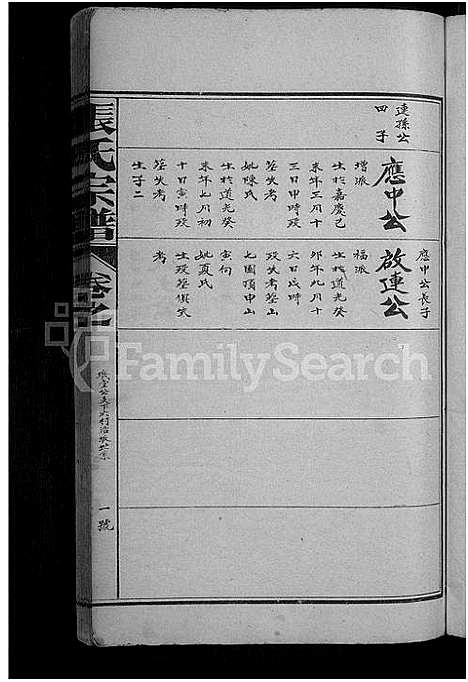 連孫公
四子
應中公
增派
生於嘉慶己
未年三月十
三日申時歿
塋失考
妣陳氏
生於道光癸
未年七月初
十日寅時歿
塋失考
生子二
應中公長子
啟連公
福派
生於道光癸
卯年九月十
六日戌時
歿失考塋山
七園頂申山
寅向
妣夏氏
生歿塋俱失
考
張氏宗譜
卷之
一號
FamilySearch
FamilySearch
FamilySearch